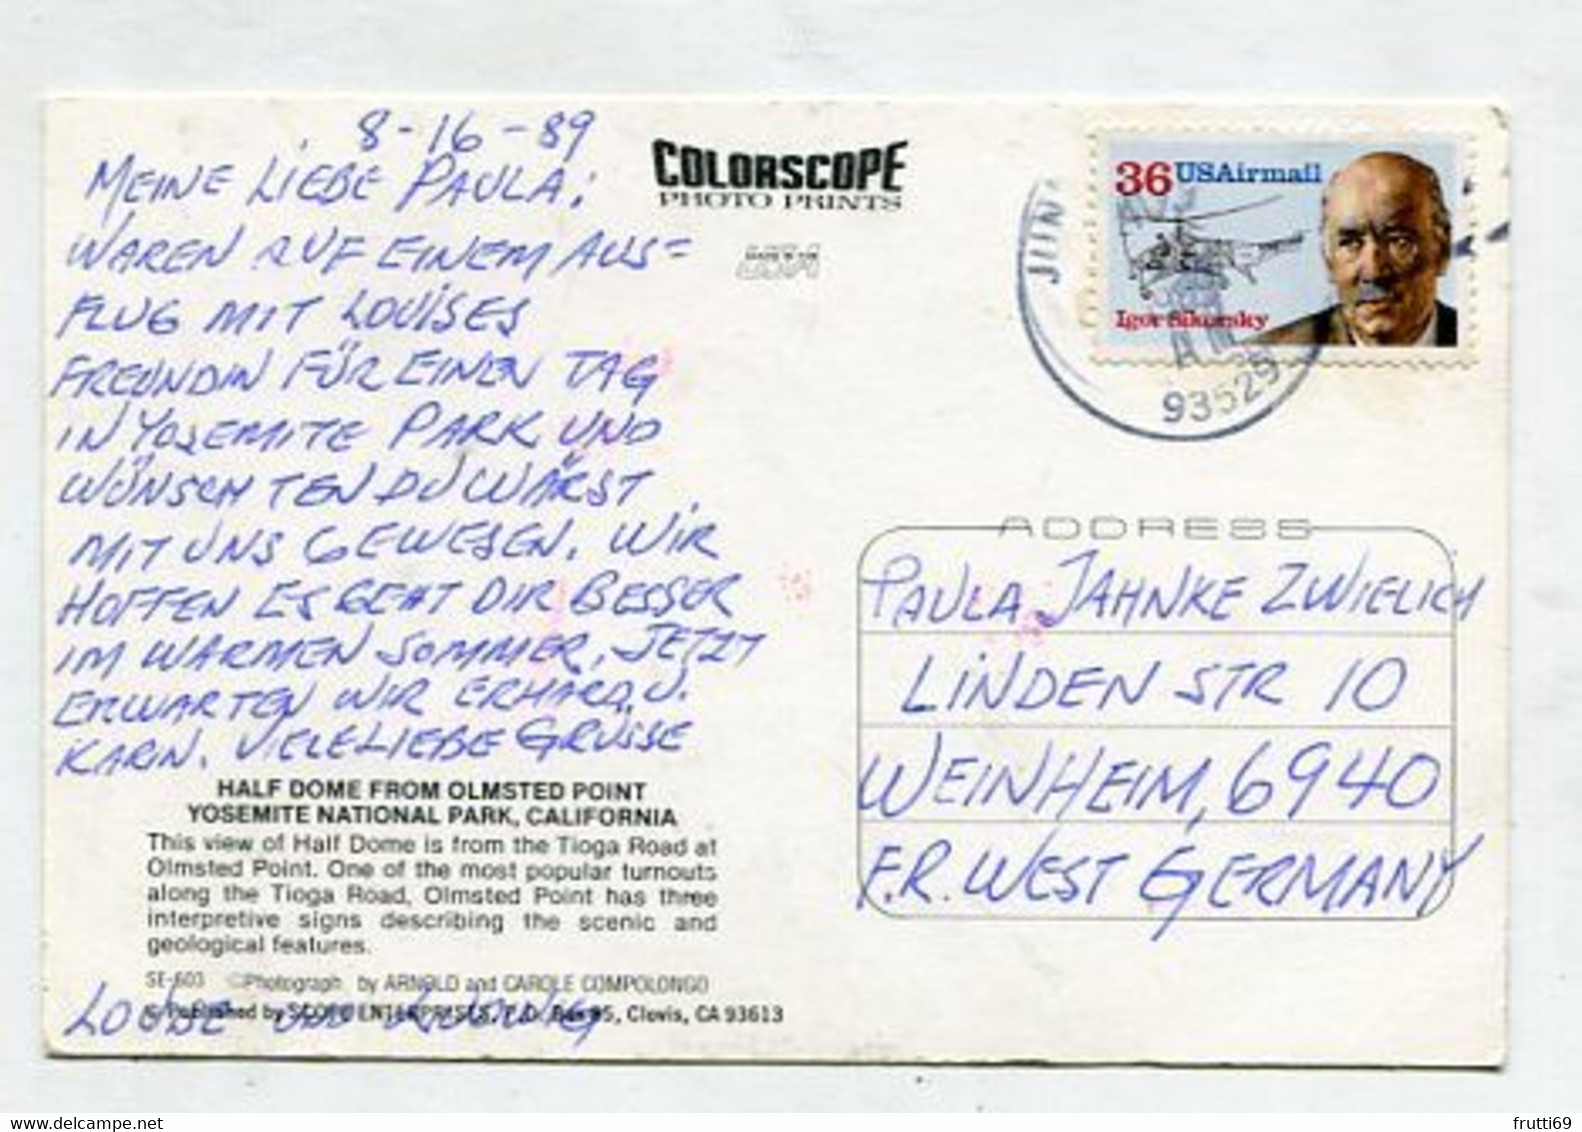 8-16-89
MEINE LIEBE PAULA;
WAREN AUF EINEM AUS=
FLUG MIT LOUISES
FREUNDIN FÜR EINEN TAG
IN YOSEMITE PARK UND
WÜNSCHTEN DU WÄRST
MIT UNS GEWESEN. WIR
HOFFEN ES GEHT DIR BESSER
IM WARMEN SOMMER. JETZT
ERWARTEN WIR ERHARD U.
KARIN. VIELE LIEBE GRÜSSE
LOUISE UND LUDWIG
COLORSCOPE
PHOTO PRINTS
MADE IN THE
USA
HALF DOME FROM OLMSTED POINT
YOSEMITE NATIONAL PARK, CALIFORNIA
This view of Half Dome is from the Tioga Road at
Olmsted Point. One of the most popular turnouts
along the Tioga Road, Olmsted Point has three
interpretive signs describing the scenic and
geological features.
SE-603 ©Photograph by ARNOLD and CAROLE COMPOLONGO
© Published by SCOPE ENTERPRISES, P.O. Box 5, Clovis, CA 93613
36 USAirmail
Igor Sikorsky
JUN
AUG
AM
93529
ADDRESS
PAULA JAHNKE ZWIELICH
LINDEN STR 10
WEINHEIM, 6940
F.R. WEST GERMANY
frutti69